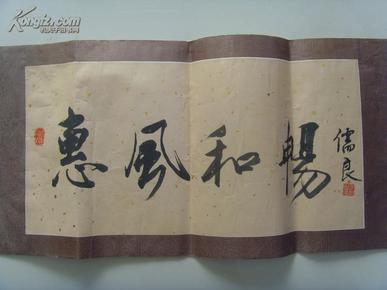 惠風和暢
儒良
Kongfz.com
孔夫子旧书网